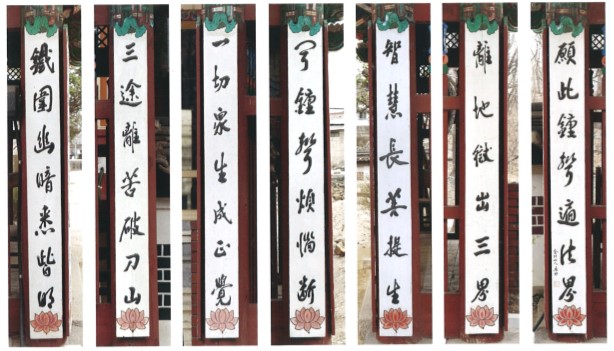 願此鐘聲遍法界
離地獄出三界
智慧長菩提生
聞鐘聲煩惱斷
一切衆生成正覺
三途離苦破刀山
鐵圍幽暗悉皆明